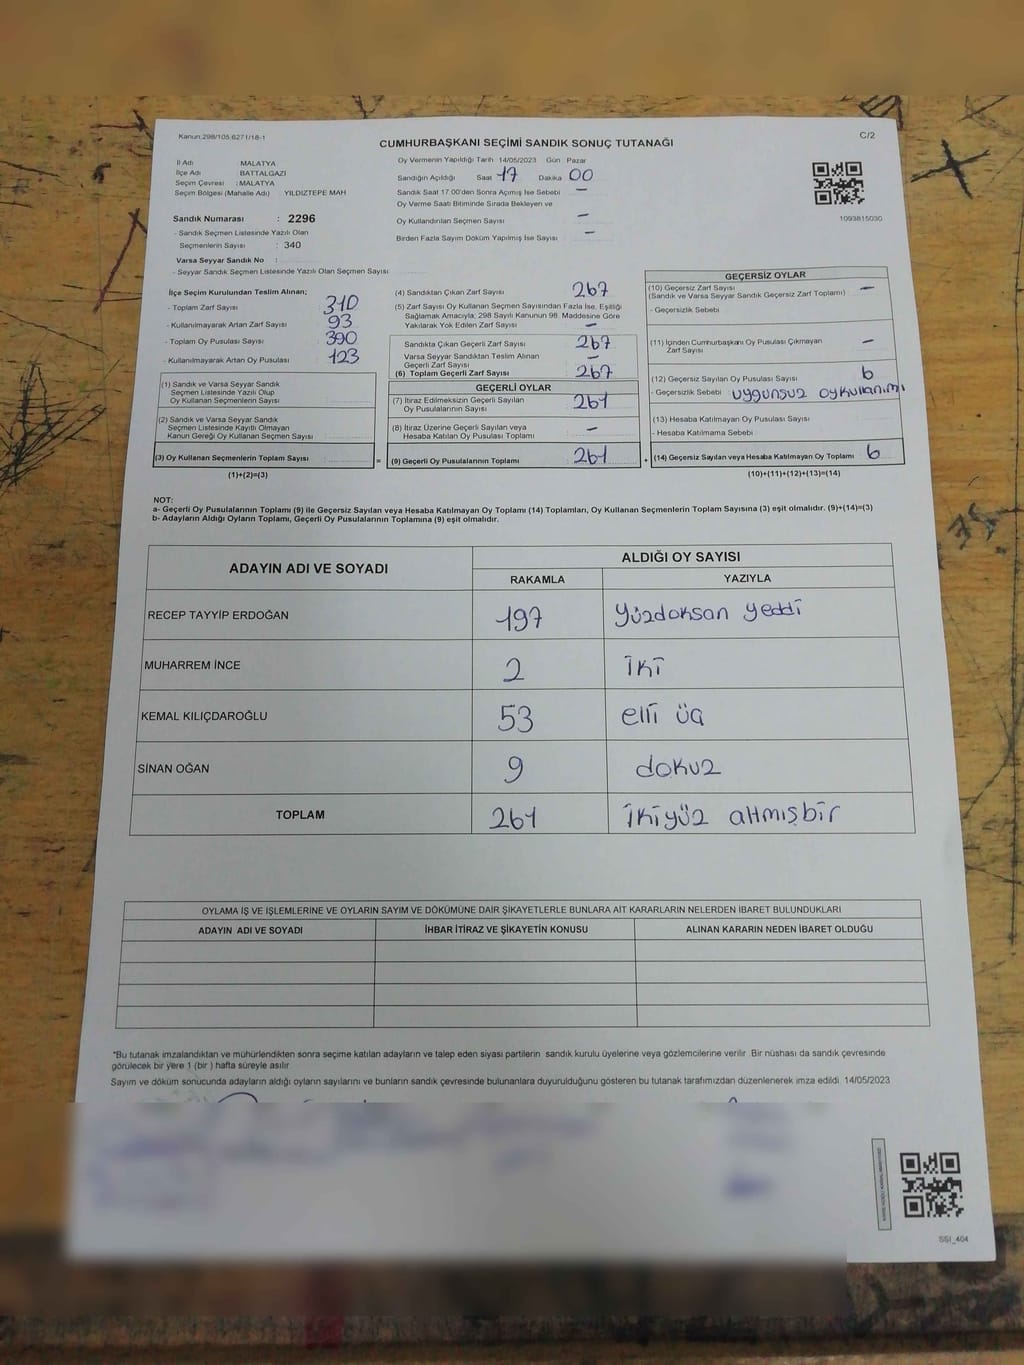 Kanun:298/105 6271/18-1
C/2
CUMHURBAŞKANI SEÇİMİ SANDIK SONUÇ TUTANAĞI
İl Adı : MALATYA
İlçe Adı : BATTALGAZİ
Seçim Çevresi : MALATYA
Seçim Bölgesi (Mahalle Adı) : YILDIZTEPE MAH
Sandık Numarası : 2296
- Sandık Seçmen Listesinde Yazılı Olan
Seçmenlerin Sayısı : 340
Varsa Seyyar Sandık No :
- Seyyar Sandık Seçmen Listesinde Yazılı Olan Seçmen Sayısı
Oy Vermenin Yapıldığı Tarih 14/05/2023 Gün Pazar
Sandığın Açıldığı Saat 17 Dakika 00
Sandık Saat 17.00'den Sonra Açımış İse Sebebi –
Oy Verme Saati Bitiminde Sırada Bekleyen ve
Oy Kullandırılan Seçmen Sayısı –
Birden Fazla Sayım Döküm Yapılmış İse Sayısı –
1093815030
İlçe Seçim Kurulundan Teslim Alınan;
- Toplam Zarf Sayısı 310
- Kullanılmayarak Artan Zarf Sayısı 93
- Toplam Oy Pusulası Sayısı 390
- Kullanılmayarak Artan Oy Pusulası 123
(1) Sandık ve Varsa Seyyar Sandık
Seçmen Listesinde Yazılı Olup
Oy Kullanan Seçmenlerin Sayısı
(2) Sandık ve Varsa Seyyar Sandık
Seçmen Listesinde Kayıtlı Olmayan
Kanun Gereği Oy Kullanan Seçmen Sayısı
(3) Oy Kullanan Seçmenlerin Toplam Sayısı =
(1)+(2)=(3)
(4) Sandıktan Çıkan Zarf Sayısı 267
(5) Zarf Sayısı Oy Kullanan Seçmen Sayısından Fazla İse, Eşitliği
Sağlamak Amacıyla, 298 Sayılı Kanunun 98. Maddesine Göre
Yakılarak Yok Edilen Zarf Sayısı –
Sandıkta Çıkan Geçerli Zarf Sayısı 267
Varsa Seyyar Sandıktan Teslim Alınan
Geçerli Zarf Sayısı –
(6) Toplam Geçerli Zarf Sayısı 267
GEÇERLİ OYLAR
(7) İtiraz Edilmeksizin Geçerli Sayılan
Oy Pusulalarının Sayısı 261
(8) İtiraz Üzerine Geçerli Sayılan veya
Hesaba Katılan Oy Pusulası Toplamı –
(9) Geçerli Oy Pusulalarının Toplamı 261 +
GEÇERSİZ OYLAR
(10) Geçersiz Zarf Sayısı –
(Sandık ve Varsa Seyyar Sandık Geçersiz Zarf Toplamı)
- Geçersizlik Sebebi
(11) İçinden Cumhurbaşkanı Oy Pusulası Çıkmayan
Zarf Sayısı –
(12) Geçersiz Sayılan Oy Pusulası Sayısı 6
- Geçersizlik Sebebi uygunsuz oy kullanımı
(13) Hesaba Katılmayan Oy Pusulası Sayısı
- Hesaba Katılmama Sebebi
(14) Geçersiz Sayılan veya Hesaba Katılmayan Oy Toplamı 6
(10)+(11)+(12)+(13)=(14)
NOT:
a- Geçerli Oy Pusulalarının Toplamı (9) ile Geçersiz Sayılan veya Hesaba Katılmayan Oy Toplamı (14) Toplamları, Oy Kullanan Seçmenlerin Toplam Sayısına (3) eşit olmalıdır. (9)+(14)=(3)
b- Adayların Aldığı Oyların Toplamı, Geçerli Oy Pusulalarının Toplamına (9) eşit olmalıdır.
ADAYIN ADI VE SOYADI ALDIĞI OY SAYISI
RAKAMLA YAZIYLA
RECEP TAYYİP ERDOĞAN 197 Yüzdoksan yeddi
MUHARREM İNCE 2 iki
KEMAL KILIÇDAROĞLU 53 elli üç
SİNAN OĞAN 9 dokuz
TOPLAM 261 ikiyüz altmışbir
OYLAMA İŞ VE İŞLEMLERİNE VE OYLARIN SAYIM VE DÖKÜMÜNE DAİR ŞİKAYETLERLE BUNLARA AİT KARARLARIN NELERDEN İBARET BULUNDUKLARI
ADAYIN ADI VE SOYADI İHBAR İTİRAZ VE ŞİKAYETİN KONUSU ALINAN KARARIN NEDEN İBARET OLDUĞU
*Bu tutanak imzalandıktan ve mühürlendikten sonra seçime katılan adayların ve talep eden siyasi partilerin sandık kurulu üyelerine veya gözlemcilerine verilir. Bir nüshası da sandık çevresinde
görülecek bir yere 1 (bir ) hafta süreyle asılır
Sayım ve döküm sonucunda adayların aldığı oyların sayılarını ve bunların sandık çevresinde bulunanlara duyurulduğunu gösteren bu tutanak tarafımızdan düzenlenerek imza edildi. 14/05/2023
SSI_404